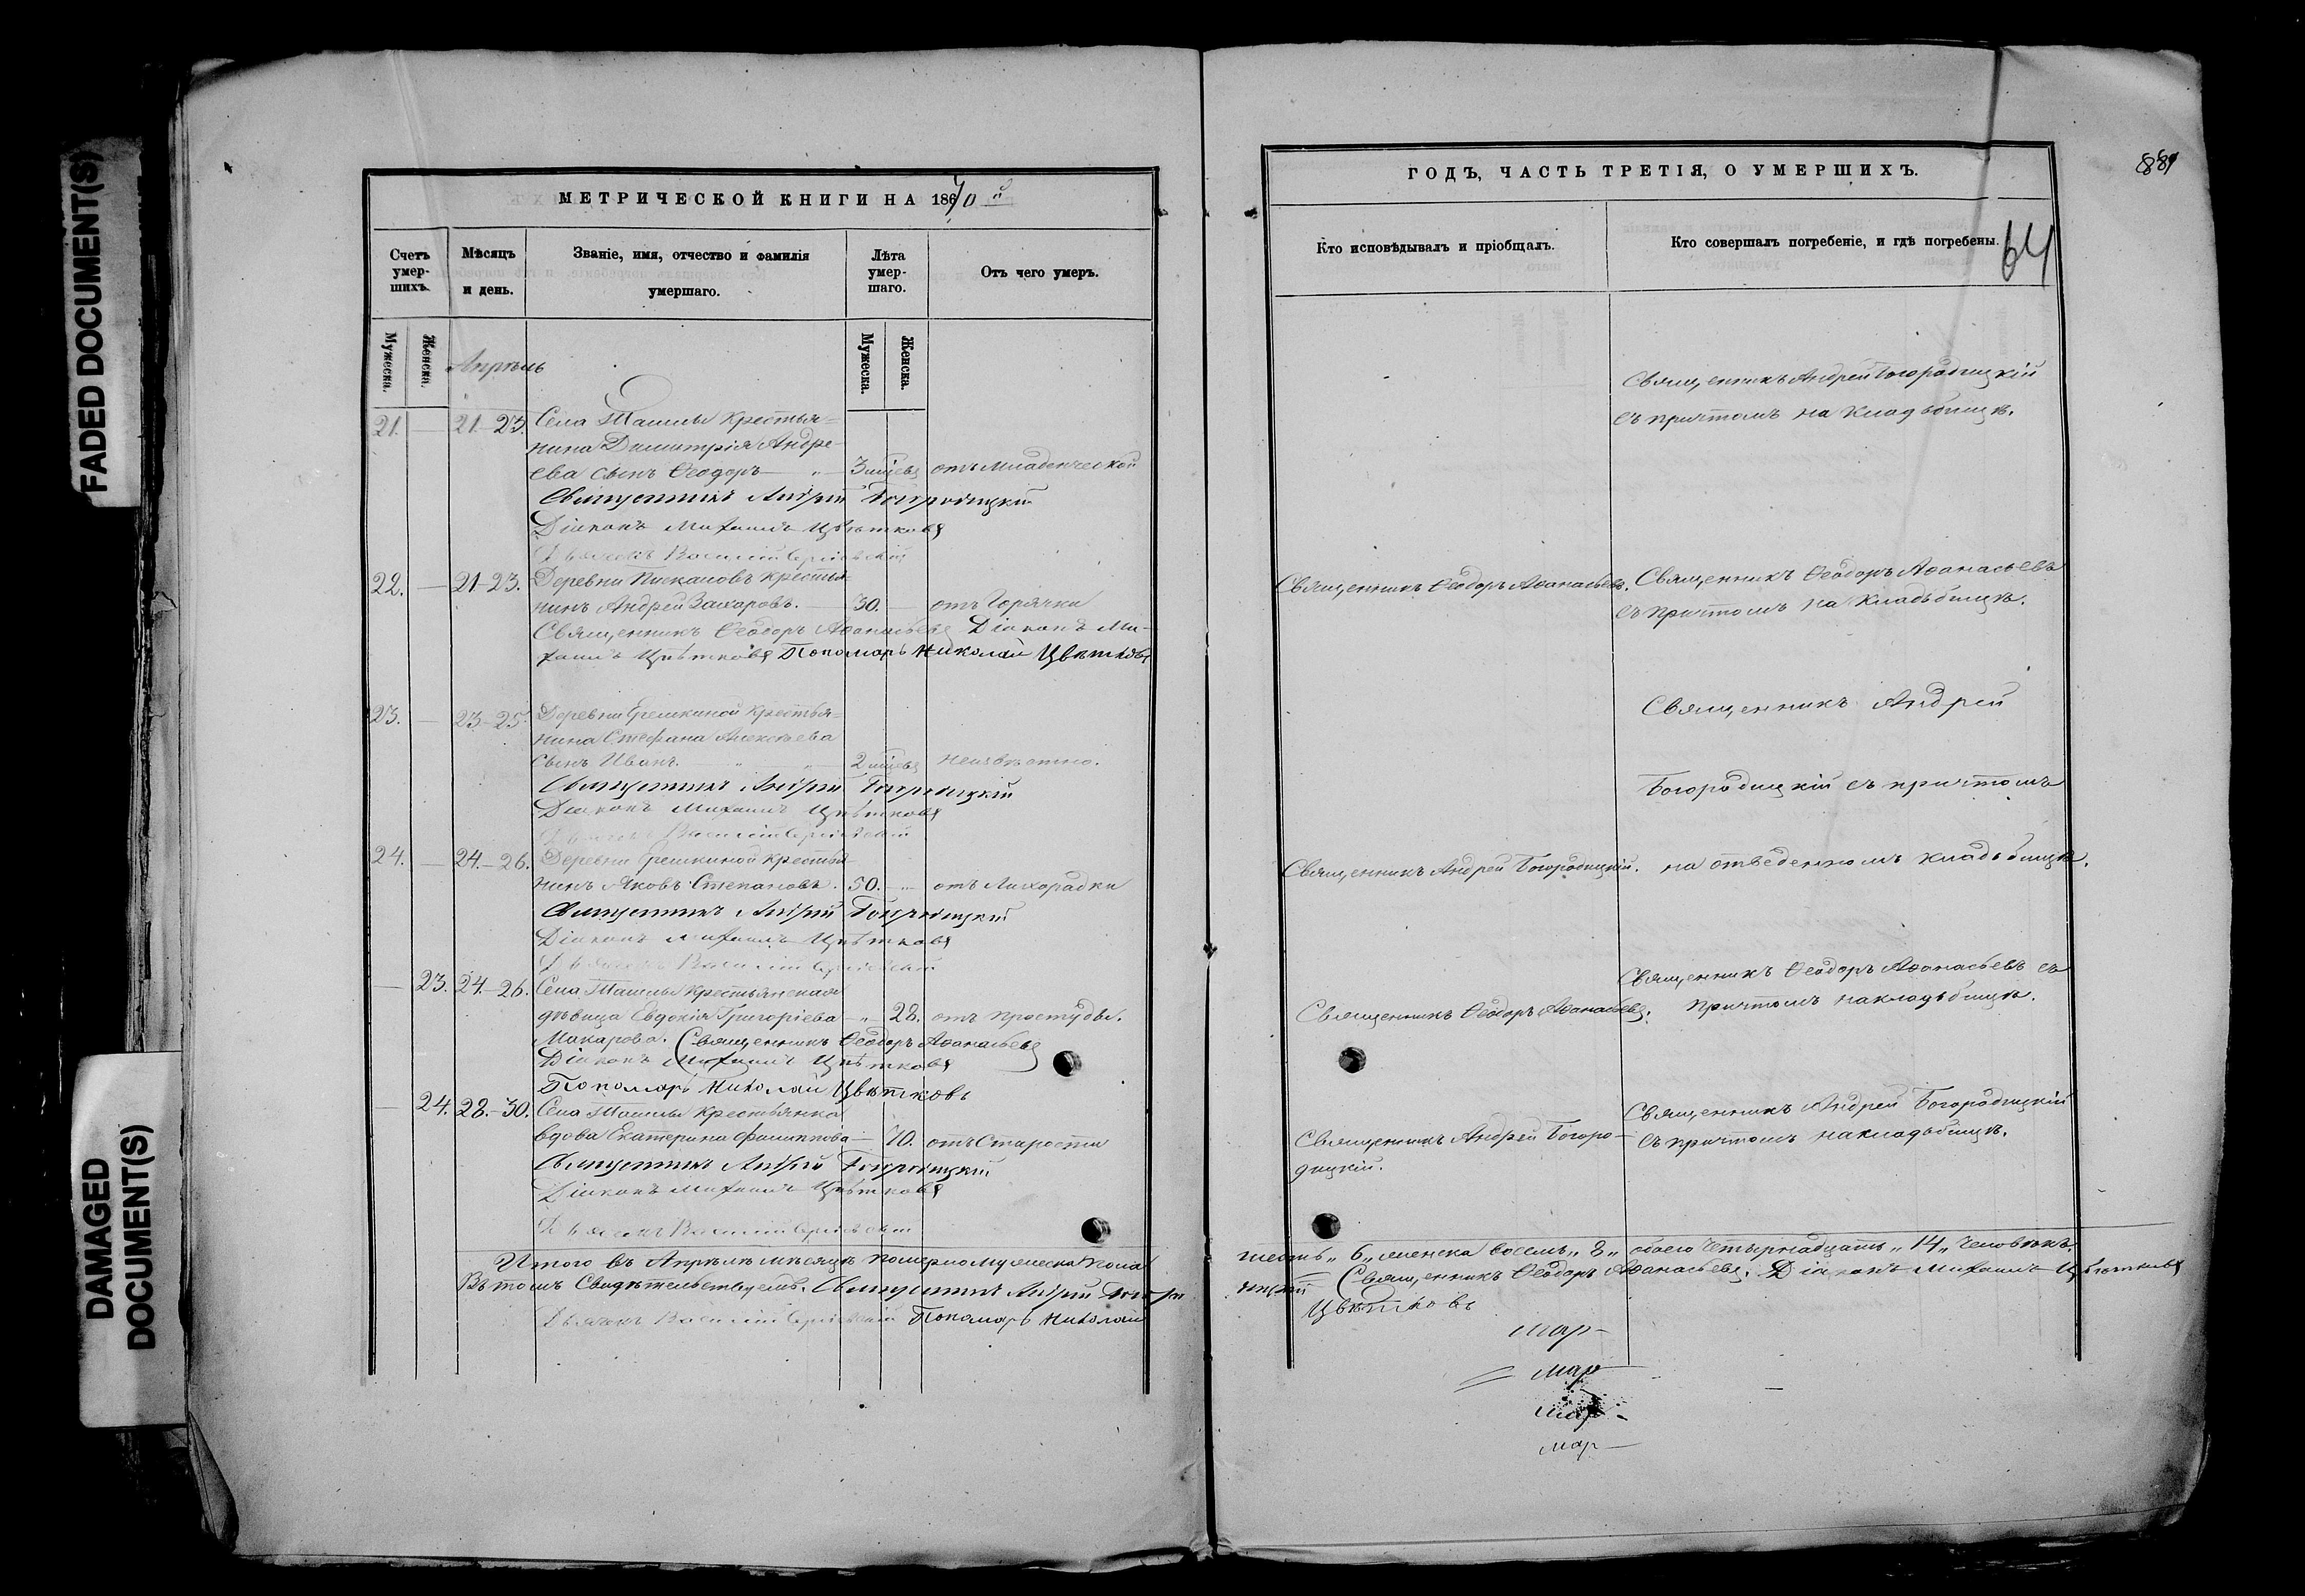 FADED DOCUMENT(S)
DAMAGED
DOCUMENT(S)
МЕТРИЧЕСКОЙ КНИГИ НА 1870 й
Счетъ умер-шихъ.
Мѣсяцъ и день.
Званіе, имя, отчество и фамилія умершаго.
Лѣта умер-шаго.
Отъ чего умеръ.
Мужеска.
Женска.
Мужеска.
Женска.
Апрѣль
21. — 21-23. Села Ташлы крестья-
нина Димитрія Андре-
ева сынъ Ѳеодоръ — 3 мѣсвъ отъ младенческой
Священникъ Андрей Богородицкій
Діаконъ Михаилъ Цвѣтковъ
Дьячокъ Василій
22. — 21-23. Деревни Пискаловъ крестья-
нинъ Андрей Захаровъ. — 30. — отъ Горячки
Священникъ Ѳеодоръ Аѳанасьевъ Діаконъ Ми-
хаилъ Цвѣтковъ Пономарь Николай Цвѣтковъ
23. — 23-25. Деревни Ерешкиной крестья-
нина Стефана Алексѣева
сынъ Иванъ. — 2 мѣсвъ неизвѣстно.
Священникъ Андрей Богородицкій
Діаконъ Михаилъ Цвѣтковъ
Дьячокъ Василій
24. — 24-26. Деревни Ерешкиной крестья-
нинъ Яковъ Степановъ. 50. — отъ Лихорадки
Священникъ Андрей Богородицкій
Діаконъ Михаилъ Цвѣтковъ
Дьячокъ Василій
— 23. 24-26. Села Ташлы крестьянская
дѣвица Евдокія Григоріева — 28. отъ простуды.
Макарова. Священникъ Ѳеодоръ Аѳанасьевъ
Діаконъ Михаилъ Цвѣтковъ
Пономарь Николай Цвѣтковъ
— 24. 28.-30. Села Ташлы крестьянка
вдова Екатерина Филиппова — 70. отъ Старости
Священникъ Андрей Богородицкій
Діаконъ Михаилъ Цвѣтковъ
Дьячокъ Василій
Итого въ Апрѣлѣ мѣсяцѣ померло мужеска пола
Въ томъ Свидѣтельствуемъ. Священникъ Андрей Богоро
Дьячокъ Василій Пономарь Николай
ГОДЪ, ЧАСТЬ ТРЕТІЯ, О УМЕРШИХЪ.
64
Кто исповѣдывалъ и пріобщалъ.
Кто совершалъ погребеніе, и гдѣ погребены.
Священникъ Андрей Богородицкій
съ причтомъ на кладьбищѣ.
Священникъ Ѳеодоръ Аѳанасьевъ. Священникъ Ѳеодоръ Аѳанасьевъ
съ причтомъ на кладьбищѣ.
Священникъ Андрей
Богородицкій съ причтомъ
Священникъ Андрей Богородицкій. на отведенномъ кладьбищѣ.
Священникъ Ѳеодоръ Аѳанасьевъ съ
Священникъ Ѳеодоръ Аѳанасьевъ. причтомъ на кладьбищѣ.
Священникъ Андрей Богородицкій
Священникъ Андрей Богоро- съ причтомъ на кладьбищѣ.
дицкій.
шесть „ 6 „ женска восемь „ 8 „ обоего четырнадцать „ 14 „ человѣкъ.
дицкій Священникъ Ѳеодоръ Аѳанасьевъ. Діаконъ Михаилъ Цвѣтковъ
Цвѣтковъ
мар-
мар
мар-
мар-